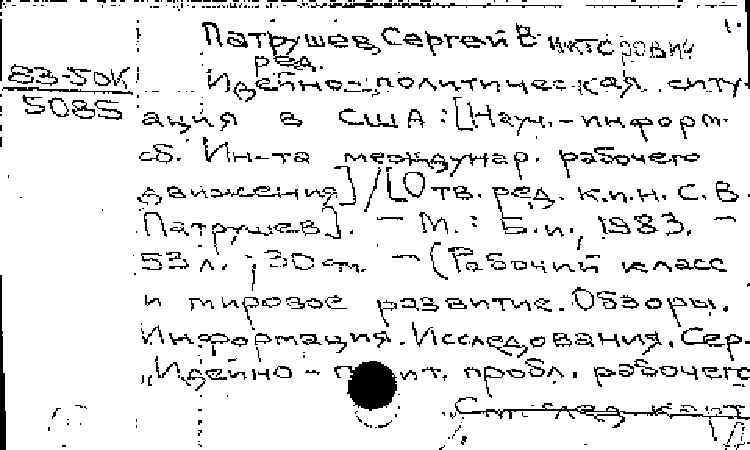 1.
Патрушев, Сергей Викторович
ред.
83-50к
5085
Идейно-политическая ситу-
ация в США : [Науч.-информ.
сб. Ин-та междунар. рабочего
движения] / [Отв. ред. к.и.н. С. В.
Патрушев]. - М. : Б.и., 1983. -
53 л. ; 30 см. - (Рабочий класс
и мировое развитие. Обзоры.
Информация. Исследования. Сер.
"Идейно-п ит. пробл. рабочего
См. след. карт